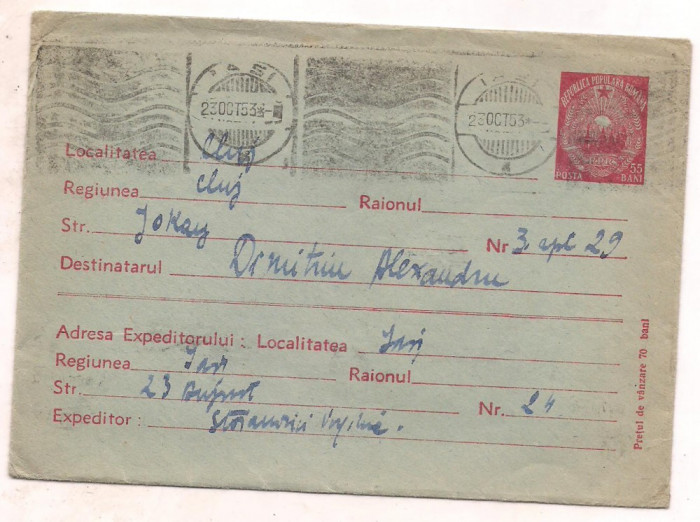 IAȘI
23OCT53
IAȘI
23OCT53
REPUBLICA POPULARA ROMANA
POSTA 55 BANI
Localitatea Cluj
Regiunea Cluj Raionul
Str. Jokay Nr 3 apt 29
Destinatarul Dimitriu Alexandru
Adresa Expeditorului : Localitatea Iași
Regiunea Iași Raionul
Str. 23 August Nr. 24
Expeditor :
Prețul de vânzare 70 bani